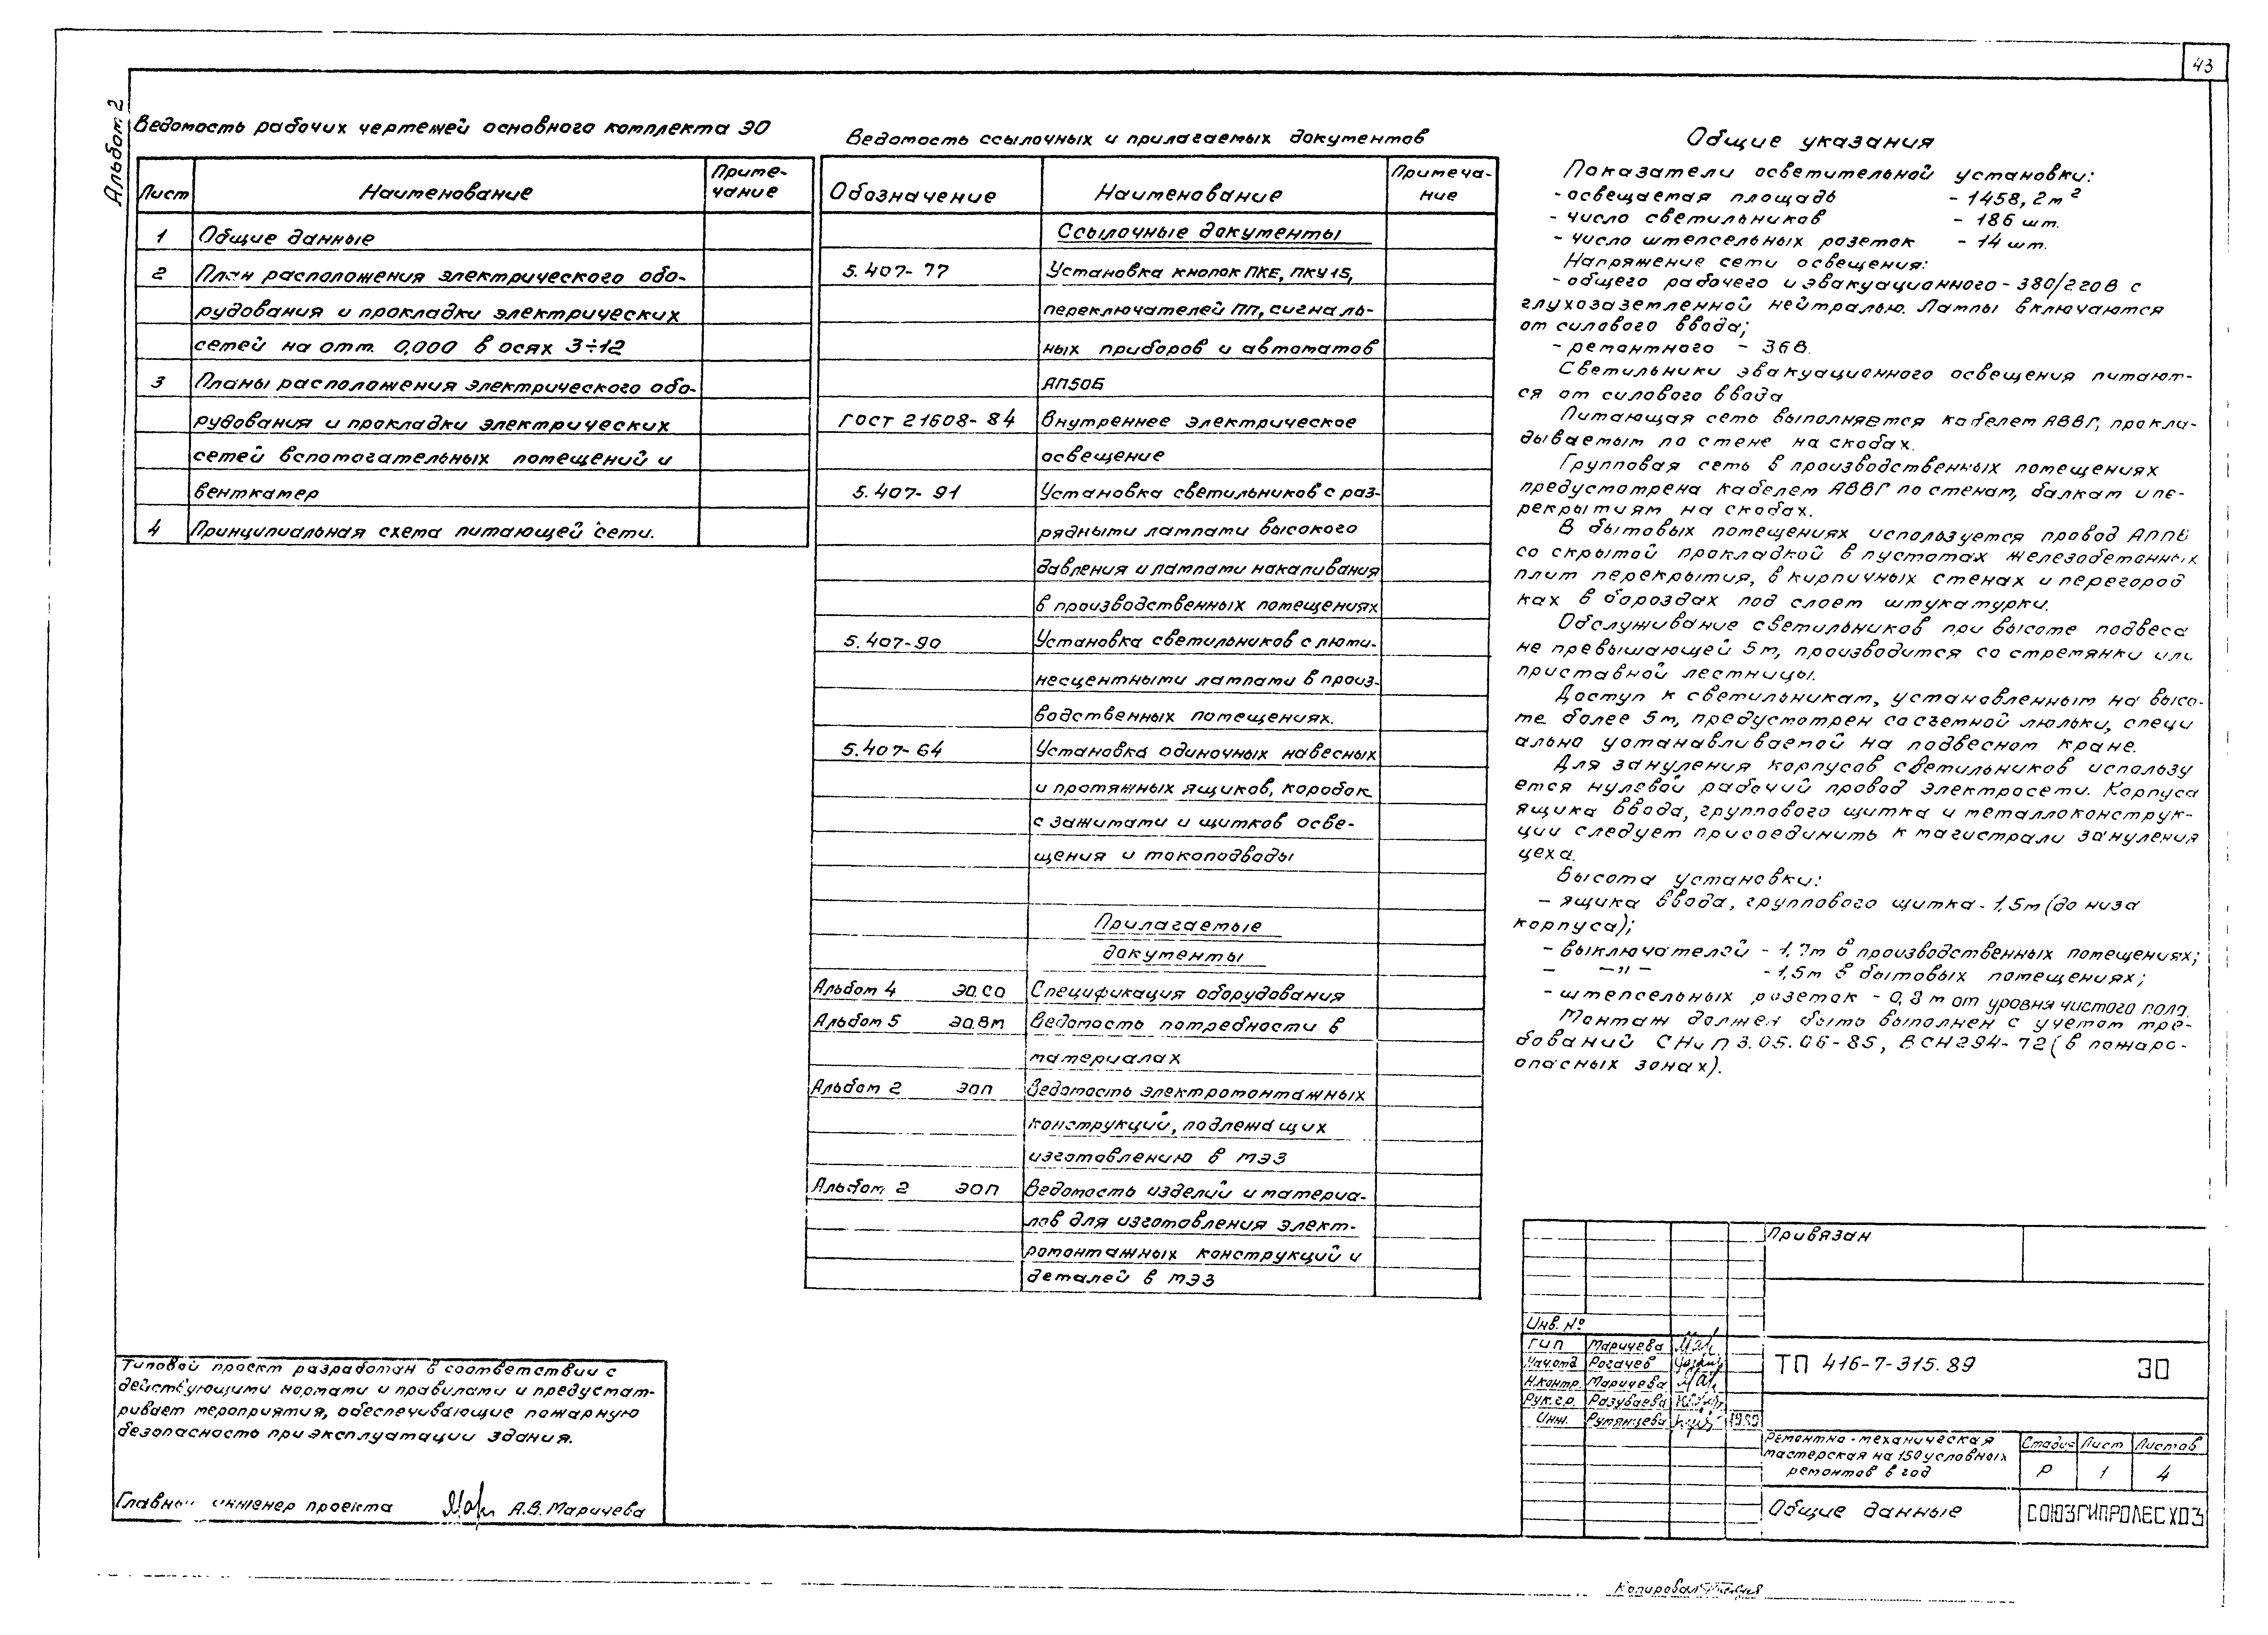 43
Альбом 2
Ведомость рабочих чертежей основного комплекта ЭО
Лист
Наименование
Приме-
чание
1
Общие данные
2
План расположения электрического обо-
рудования и прокладки электрических
сетей на отм. 0,000 в осях 3÷12
3
Планы расположения электрического обо-
рудования и прокладки электрических
сетей вспомогательных помещений и
венткамер
4
Принципиальная схема питающей сети.
Ведомость ссылочных и прилагаемых документов
Обозначение
Наименование
Примеча-
ние
Ссылочные документы
5.407-77
Установка кнопок ПКЕ, ПКУ15,
переключателей ПП, сигналь-
ных приборов и автоматов
АП50Б
ГОСТ 21608-84
Внутреннее электрическое
освещение
5.407-91
Установка светильников с раз-
рядными лампами высокого
давления и лампами накаливания
в производственных помещениях
5.407-90
Установка светильников с люми-
несцентными лампами в произ-
водственных помещениях.
5.407-64
Установка одиночных навесных
и протяжных ящиков, коробок
с зажимами и щитков осве-
щения и токоподводы
Прилагаемые
документы
Альбом 4 ЭО.СО
Спецификация оборудования
Альбом 5 ЭО.ВМ
Ведомость потребности в
материалах
Альбом 2 ЭОП
Ведомость электромонтажных
конструкций, подлежащих
изготовлению в МЭЗ
Альбом 2 ЭОП
Ведомость изделий и материа-
лов для изготовления элект-
ромонтажных конструкций и
деталей в МЭЗ
Общие указания
Показатели осветительной установки:
- освещаемая площадь - 1458,2м²
- число светильников - 186 шт.
- число штепсельных розеток - 14 шт.
Напряжение сети освещения:
- общего рабочего и эвакуационного - 380/220В с
глухозаземленной нейтралью. Лампы включаются
от силового ввода;
- ремонтного - 36В.
Светильники эвакуационного освещения питают-
ся от силового ввода
Питающая сеть выполняется кабелем АВВГ, прокла-
дываемым по стене на скобах.
Групповая сеть в производственных помещениях
предусмотрена кабелем АВВГ по стенам, балкам и пе-
рекрытиям на скобах.
В бытовых помещениях используется провод АППВ
со скрытой прокладкой в пустотах железобетонных
плит перекрытия, в кирпичных стенах и перегород
ках в бороздах под слоем штукатурки.
Обслуживание светильников при высоте подвеса
не превышающей 5м, производится со стремянки или
приставной лестницы.
Доступ к светильникам, установленным на высо-
те более 5м, предусмотрен со съемной люльки, специ
ально устанавливаемой на подвесном кране.
Для зануления корпусов светильников использу
ется нулевой рабочий провод электросети. Корпуса
ящика ввода, группового щитка и металлоконструк-
ции следует присоединить к магистрали зануления
цеха.
Высота установки:
- ящика ввода, группового щитка - 1,5м (до низа
корпуса);
- выключателей - м в производственных помещениях;
- -"- - 1,5м в бытовых помещениях;
- штепсельных розеток - 0,8 м от уровня чистого пола.
Монтаж должен быть выполнен с учетом тре-
бований СНиП 3.05.06-85, ВСН294-72 (в пожаро-
опасных зонах).
Типовой проект разработан в соответствии с
действующими нормами и правилами и предусмат-
ривает мероприятия, обеспечивающие пожарную
безопасность при эксплуатации здания.
Главный инженер проекта А.В. Маричева
Привязан
Инв. №
ГИП Маричева
Нач.отд Рогачев
Н.контр. Маричева
Рук.гр. Разуваева
Инж. Румянцева 1989
ТП 416-7-315.89
ЭО
Ремонтно-механическая
мастерская на 150 условных
ремонтов в год
Стадия Лист Листов
Р 1 4
Общие данные
СОЮЗГИПРОЛЕСХОЗ
Копировал